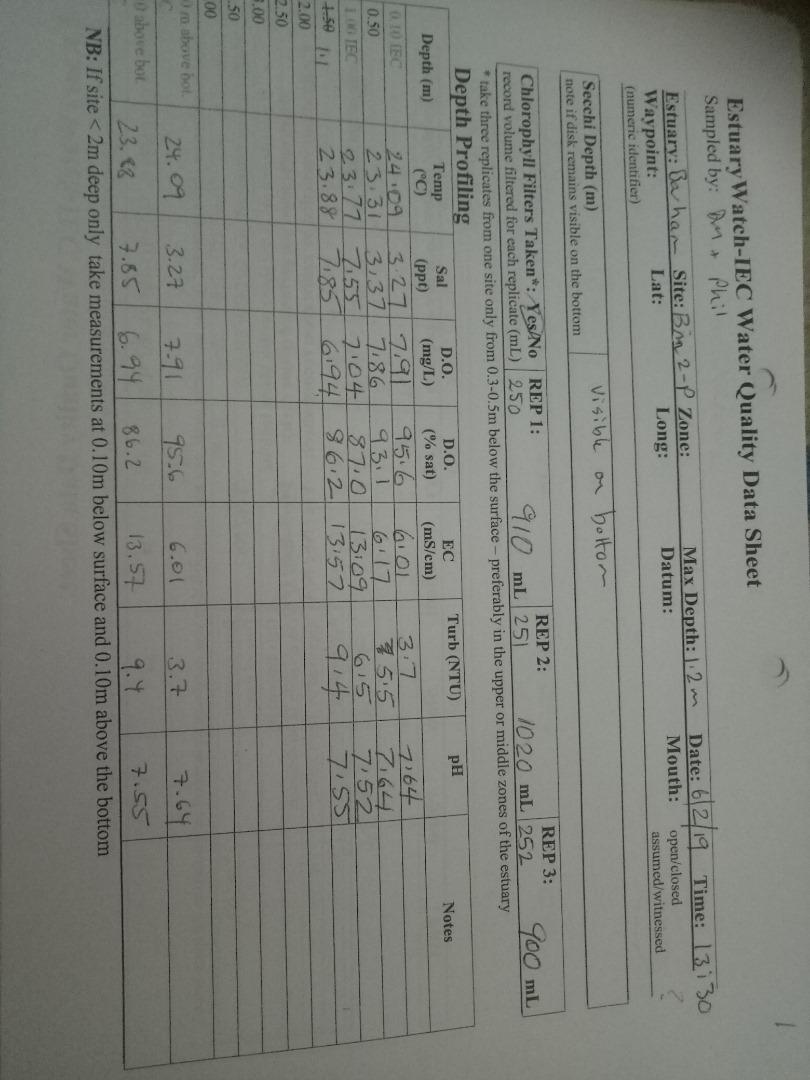 EstuaryWatch-IEC Water Quality Data Sheet
1
Sampled by: Bm + Phil
Estuary: Site: Bim 2-P Zone: Max Depth: 1.2m Date: 6/2/19 Time: 13:30
Waypoint: Lat: Long: Datum: Mouth: open/closed ?
(numeric identifier) assumed/witnessed
Secchi Depth (m) visible on bottom
note if disk remains visible on the bottom
Chlorophyll Filters Taken*: Yes/No REP 1: REP 2: REP 3:
record volume filtered for each replicate (mL) 250 910 mL 251 1020 mL 252 900 mL
* take three replicates from one site only from 0.3-0.5m below the surface – preferably in the upper or middle zones of the estuary
Depth Profiling
Depth (m) Temp (°C) Sal (ppt) D.O. (mg/L) D.O. (% sat) EC (mS/cm) Turb (NTU) pH Notes
0.10 IEC 24.09 3.27 7.91 95.6 6.01 3.7 7.64
0.50 23.31 3.37 7.86 93.1 6.17 5.5 7.64
1.00 IEC 23.77 7.55 7.04 87.0 13.09 6.5 7.52
1.50 1.1 23.88 7.85 6.94 86.2 13.57 9.4 7.55
2.00
2.50
3.00
.50
.00
0 m above bot. 24.09 3.27 7.91 95.6 6.01 3.7 7.64
0 above bot. 23.88 7.85 6.94 86.2 13.57 9.4 7.55
NB: If site <2m deep only take measurements at 0.10m below surface and 0.10m above the bottom